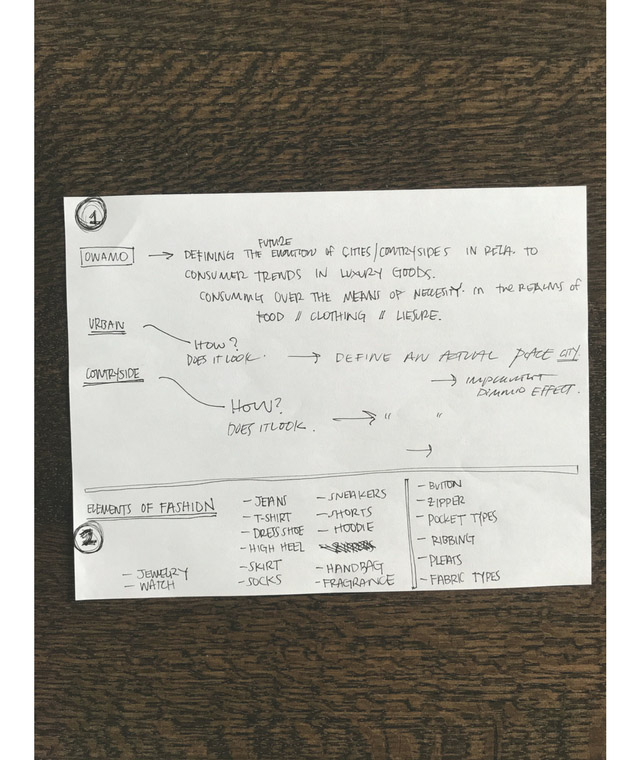 1
OWAMO → DEFINING THE FUTURE EVOLUTION OF CITIES/CONTRYSIDES IN RELA. TO
CONSUMER TRENDS IN LUXURY GOODS.
CONSUMING OVER THE MEANS OF NECESITY. IN THE REALMS OF
FOOD // CLOTHING // LIESURE.
URBAN
HOW?
DOES IT LOOK. → DEFINE AN ACTUAL PLACE CITY.
→ IMPLEMENT
DOMINO EFFECT.
CONTRYSIDE
HOW?
DOES IT LOOK. → " "
→
ELEMENTS OF FASHION
2
- JEWELRY
- WATCH
- JEANS
- T-SHIRT
- DRESS SHOE
- HIGH HEEL
- SKIRT
- SOCKS
- SNEAKERS
- SHORTS
- HOODIE
- HANDBAG
- FRAGRANCE
- BUTTON
- ZIPPER
- POCKET TYPES
- RIBBING
- PLEATS
- FABRIC TYPES